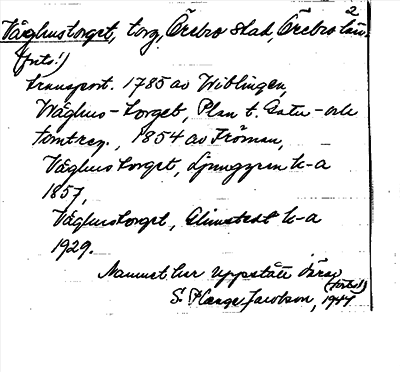 2
Våghustorget, torg, Örebro stad, Örebro län.
(forts.!)
transport. 1785 av Wiblingen,
Wåghus-torget, Plan t. Gatu- och
tomtreg., 1854 av Fröman,
Våghustorget, Ljunggren k-a
1857,
Våghustorget, Almstedt k-a
1929.
Namnet har uppstått
(forts.!)
S. Hæge Jacobson, 1947